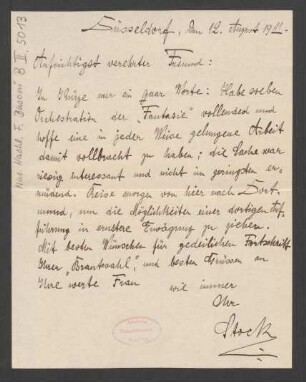 Mus. Nachl. F. Busoni B II, 5013
Düsseldorf, den 12. August 1911.
Aufrichtigst verehrter Freund:
In Kürze nur ein paar Worte: Habe soeben
Orchestration der „Fantasie" vollendet und
hoffe eine in jeder Weise gelungene Arbeit
damit vollbracht zu haben; die Sache war
riesig interessant und nicht im geringsten er-
müdend. Reise morgen von hier nach Dort-
mund, um die Möglichkeiten einer dortigen Auf-
führung in ernstere Erwägung zu ziehen.
Mit besten Wünschen für gedeihlichen Fortschritt
Ihrer „Brautwahl", und besten Grüssen an
Ihre werte Frau wie immer
Ihr
Stock